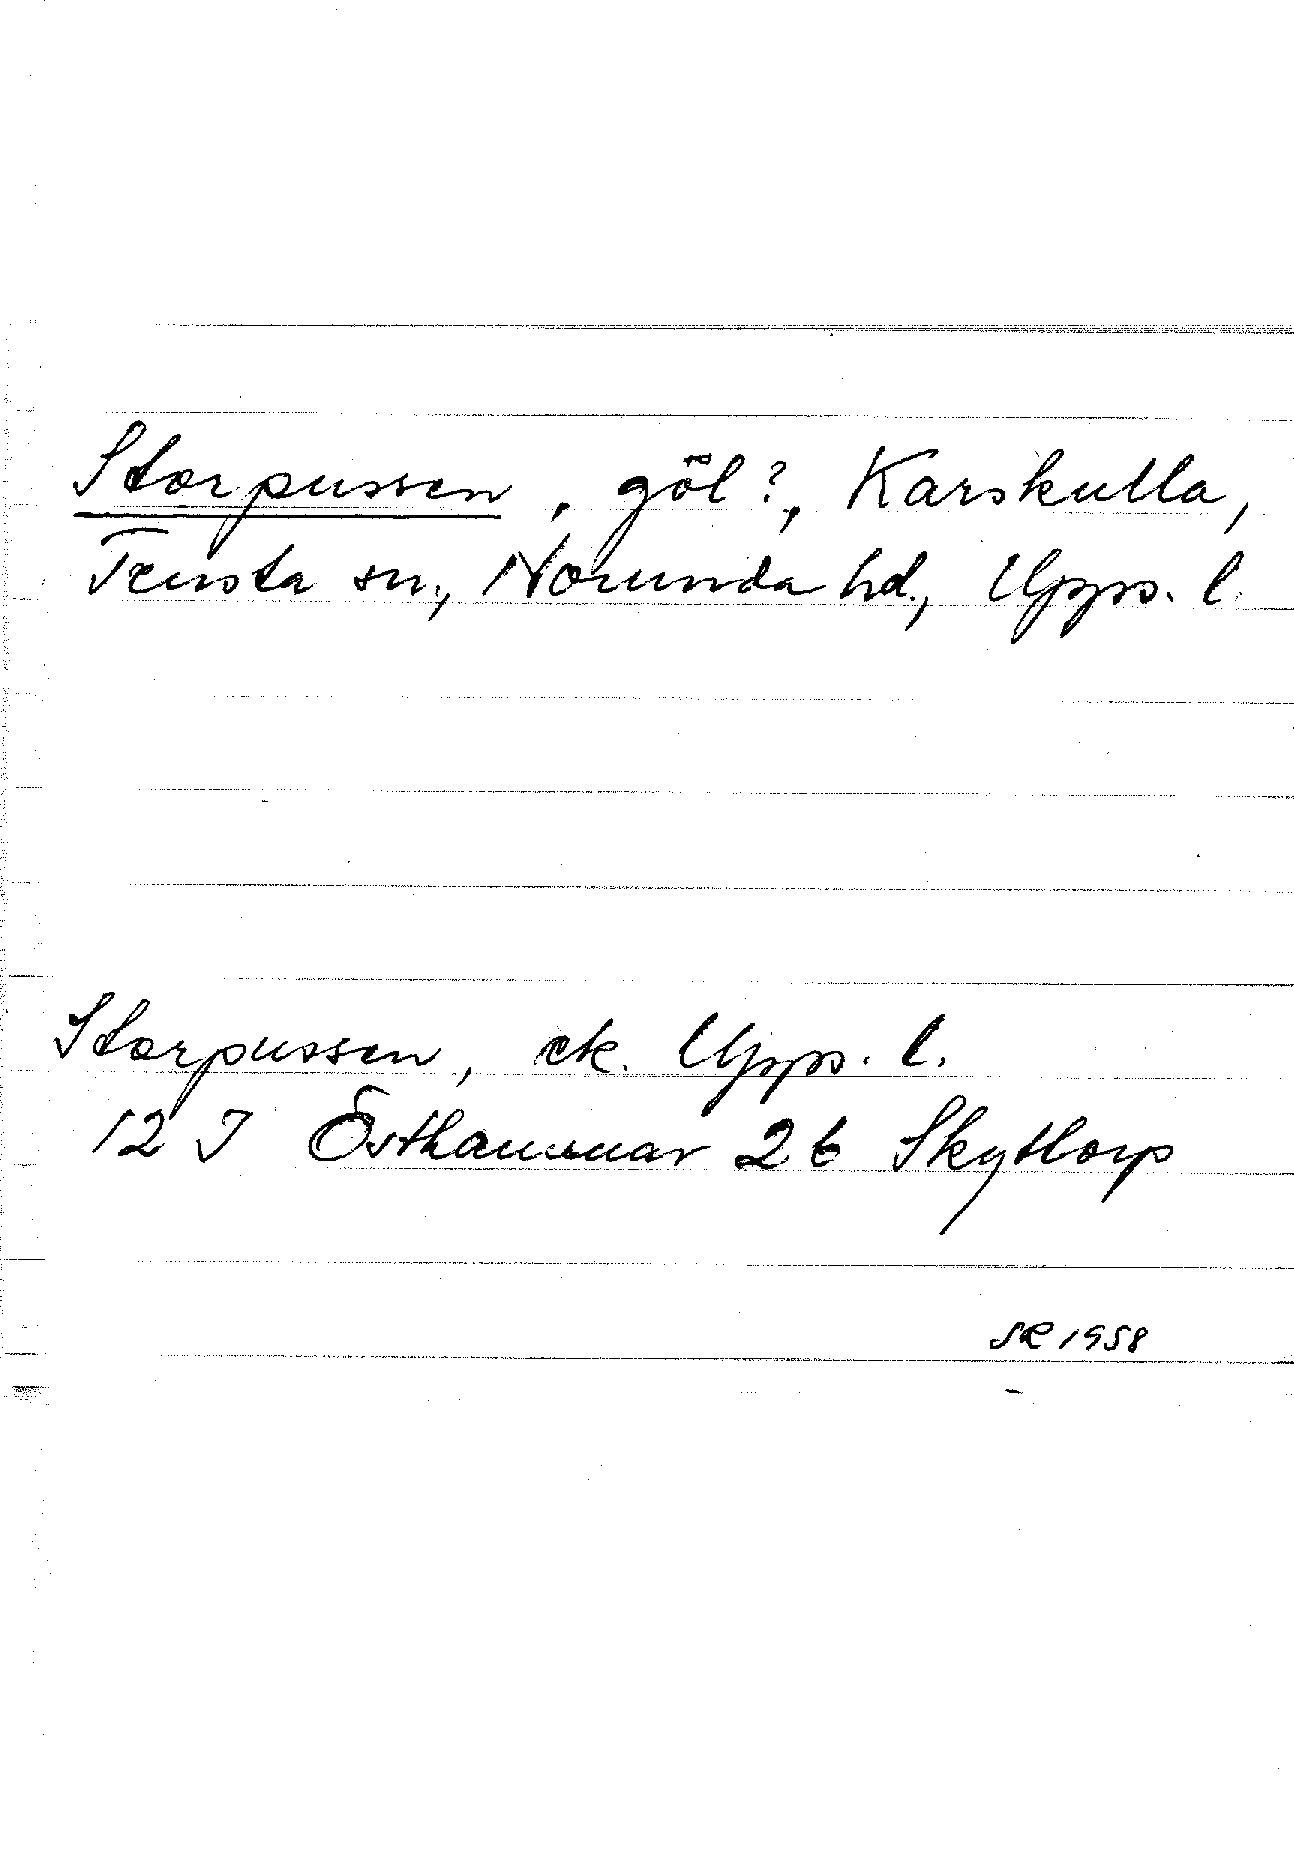 Storpussen, göl?, Karskulla,
Tensta sn., Norunda hd., Upps. l.
Storpussen, ek. Upps. l.
12 I Östhammar 2b Skyttorp
SR 1958